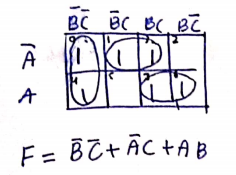 B̅C̅ B̅C BC BC̅
A̅ 0 1 1 1 3 1 2
A 4 1 5 7 1 6 1
F = B̅C̅ + A̅C + AB